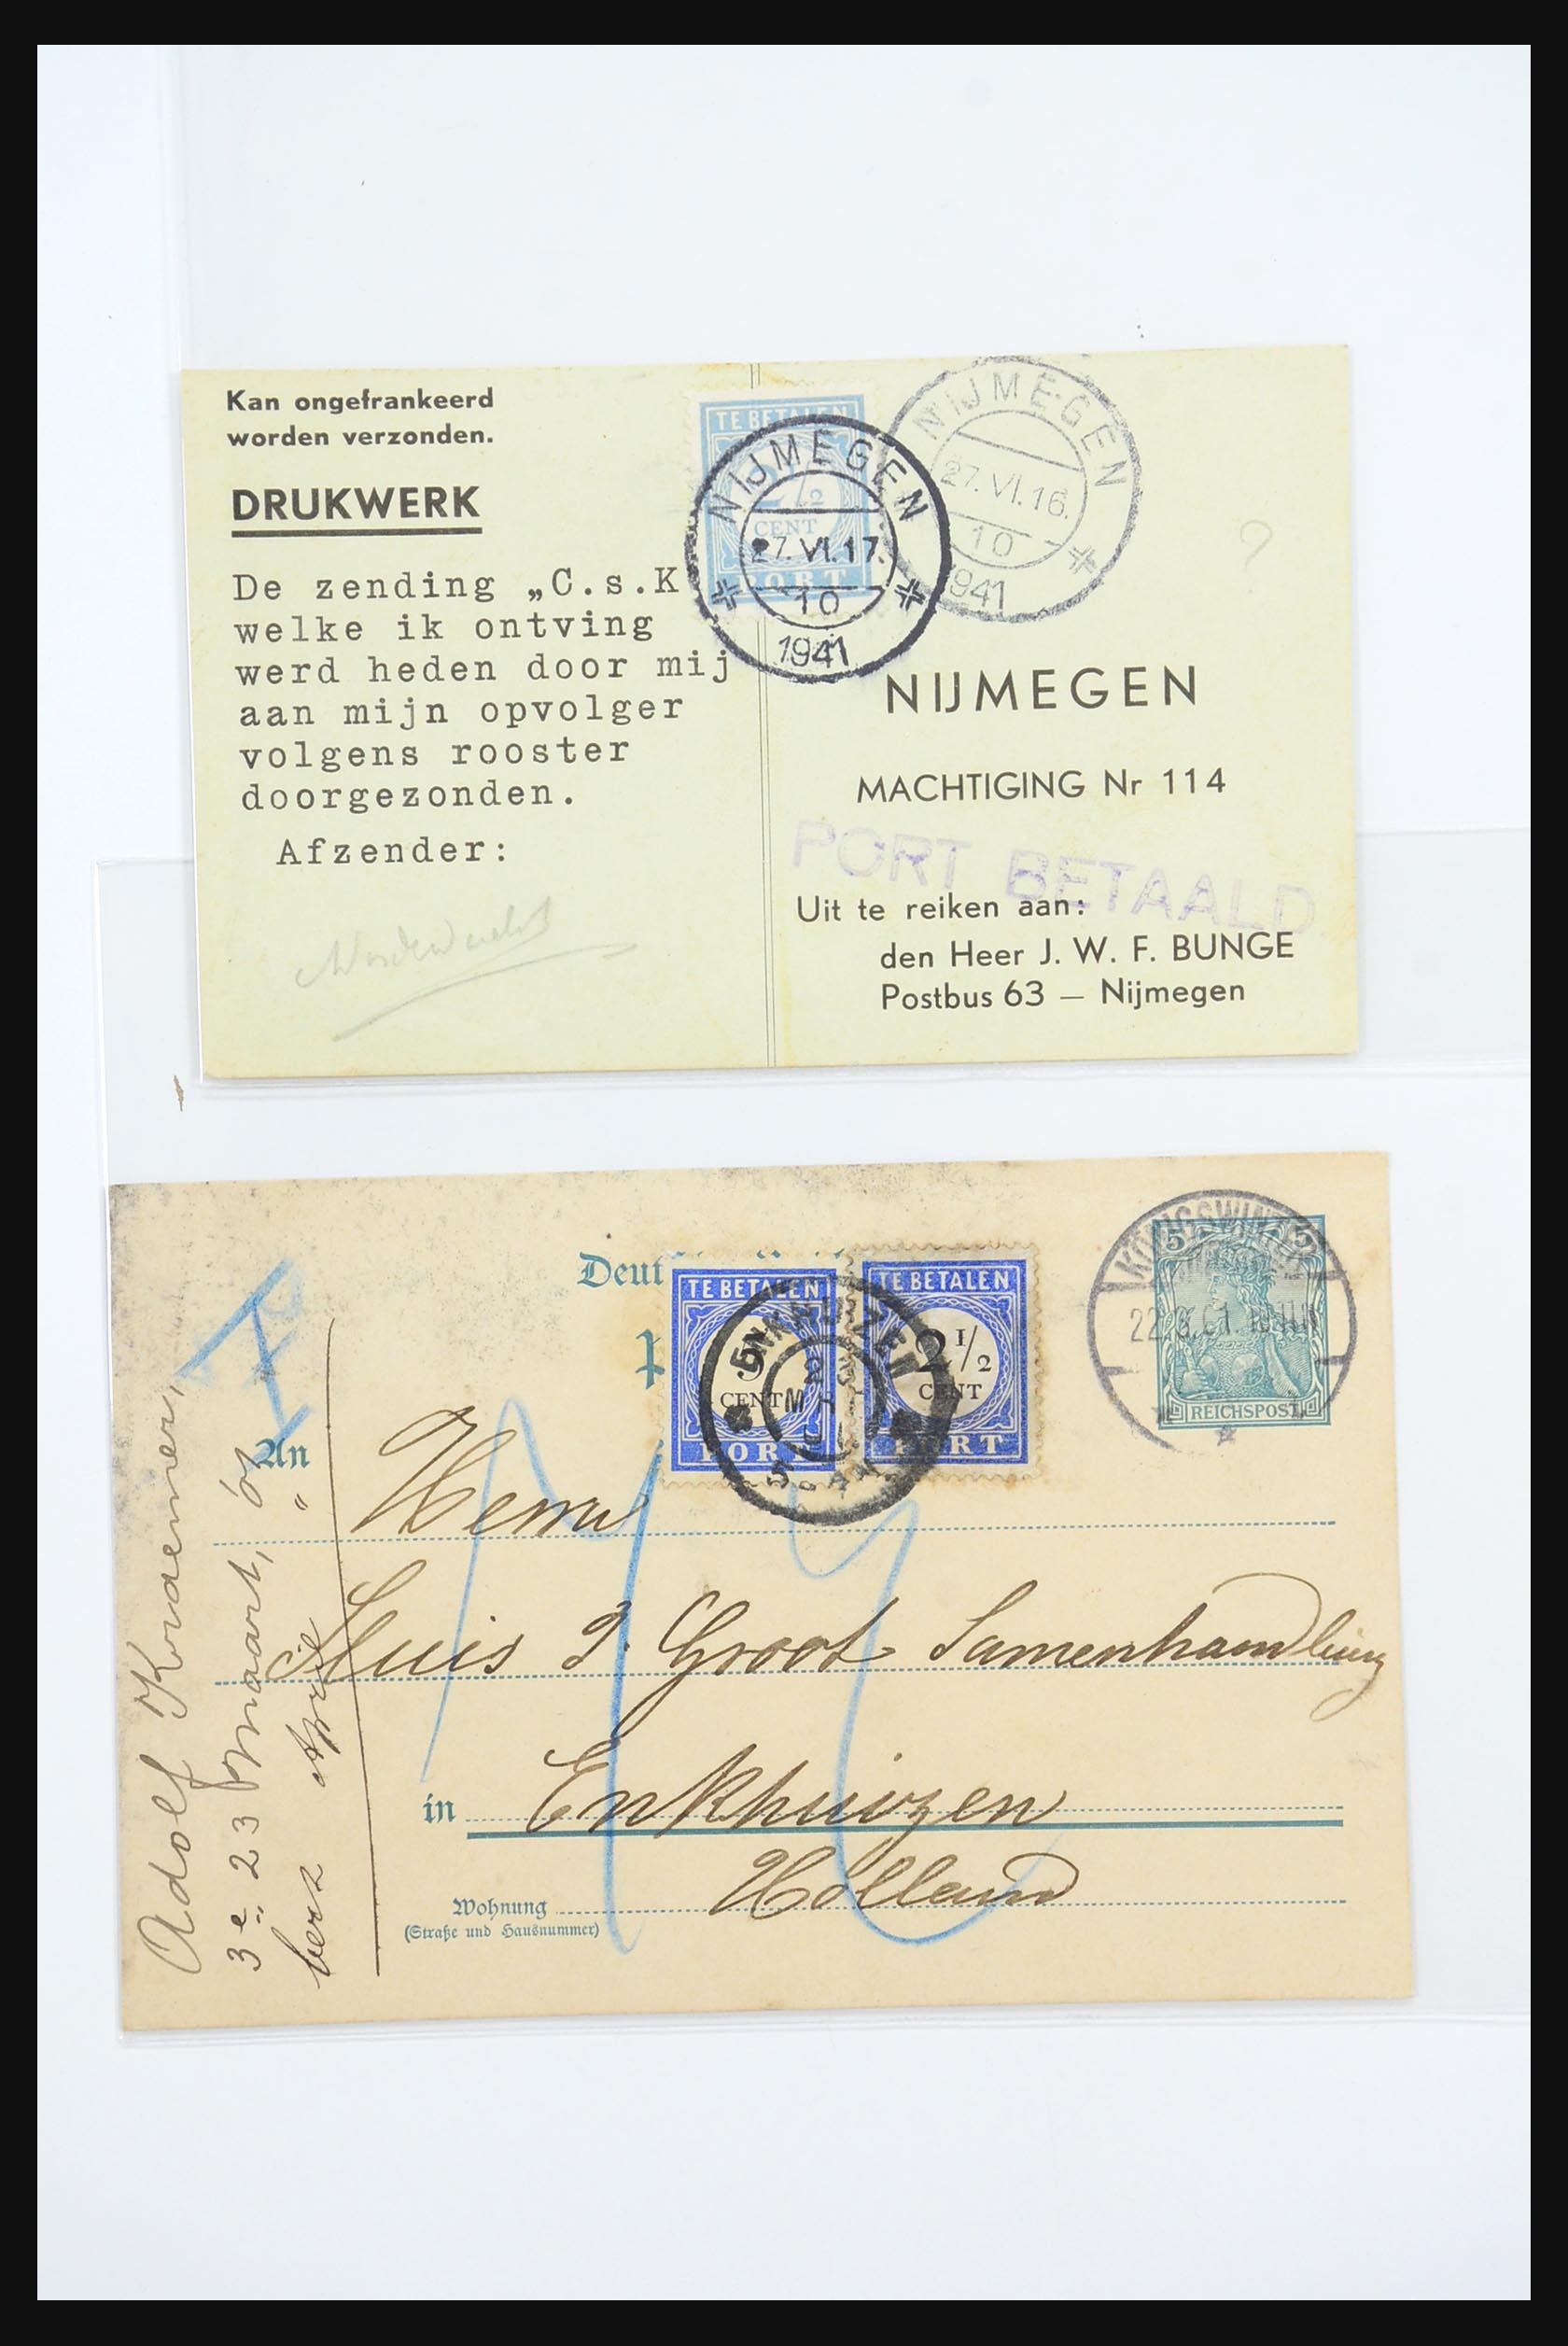 Kan ongefrankeerd
worden verzonden.
DRUKWERK
De zending „C.s.K
welke ik ontving
werd heden door mij
aan mijn opvolger
volgens rooster
doorgezonden.
Afzender:
TE BETALEN
2 1/2
CENT
PORT
NIJMEGEN
27.VI.17.
10
1941
NIJMEGEN
27.VI.16.
10
1941
NIJMEGEN
MACHTIGING Nr 114
PORT BETAALD
Uit te reiken aan:
den Heer J. W. F. BUNGE
Postbus 63 — Nijmegen
Deut
TE BETALEN
5
CENT
PORT
TE BETALEN
2 1/2
CENT
PORT
5 5
REICHSPOST
T
An
Herrn
Sluis & Groot Samenhandlung
in Enkhuizen
Holland
Wohnung
(Straße und Hausnummer)
Adolf
3e 23 maart, 01
april "